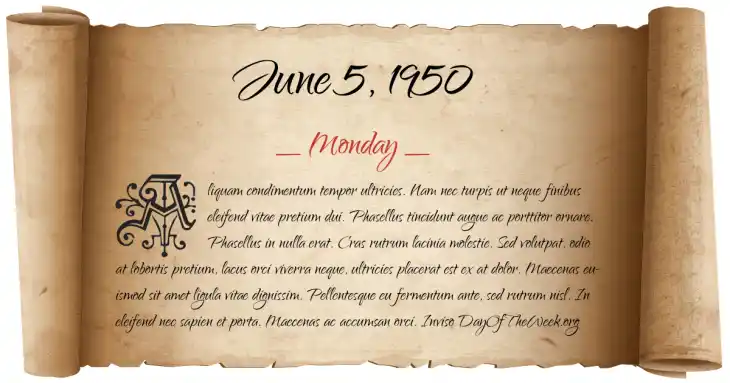 June 5, 1950
_ Monday _
Aliquam condimentum tempor ultricies. Nam nec turpis ut neque finibus
eleifend vitae pretium dui. Phasellus tincidunt augue ac porttitor ornare.
Phasellus in nulla erat. Cras rutrum lacinia molestie. Sed volutpat, odio
at lobortis pretium, lacus orci viverra neque, ultricies placerat est ex at dolor. Maecenas eu-
ismod sit amet ligula vitae dignissim. Pellentesque eu fermentum ante, sed rutrum nisl. In
eleifend nec sapien et porta. Maecenas ac accumsan orci. Inviso DayOfTheWeek.org